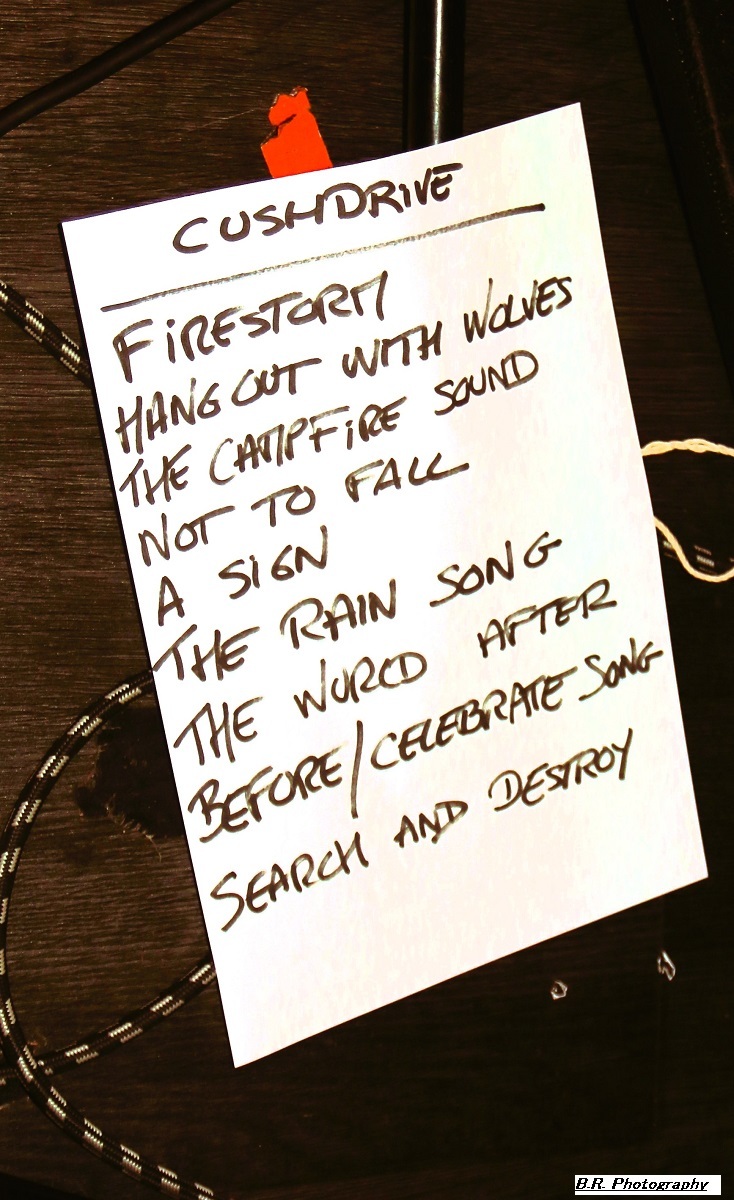 CUSHDRiVE
FiRESTORM
HANG OUT WITH WOLVES
THE CAMPFiRE SOUND
NOT TO FALL
A SiGN
THE RAIN SONG
THE WORLD AFTER
BEFORE/CELEBRATE SONG
SEARCH AND DESTROY
B.R. Photography